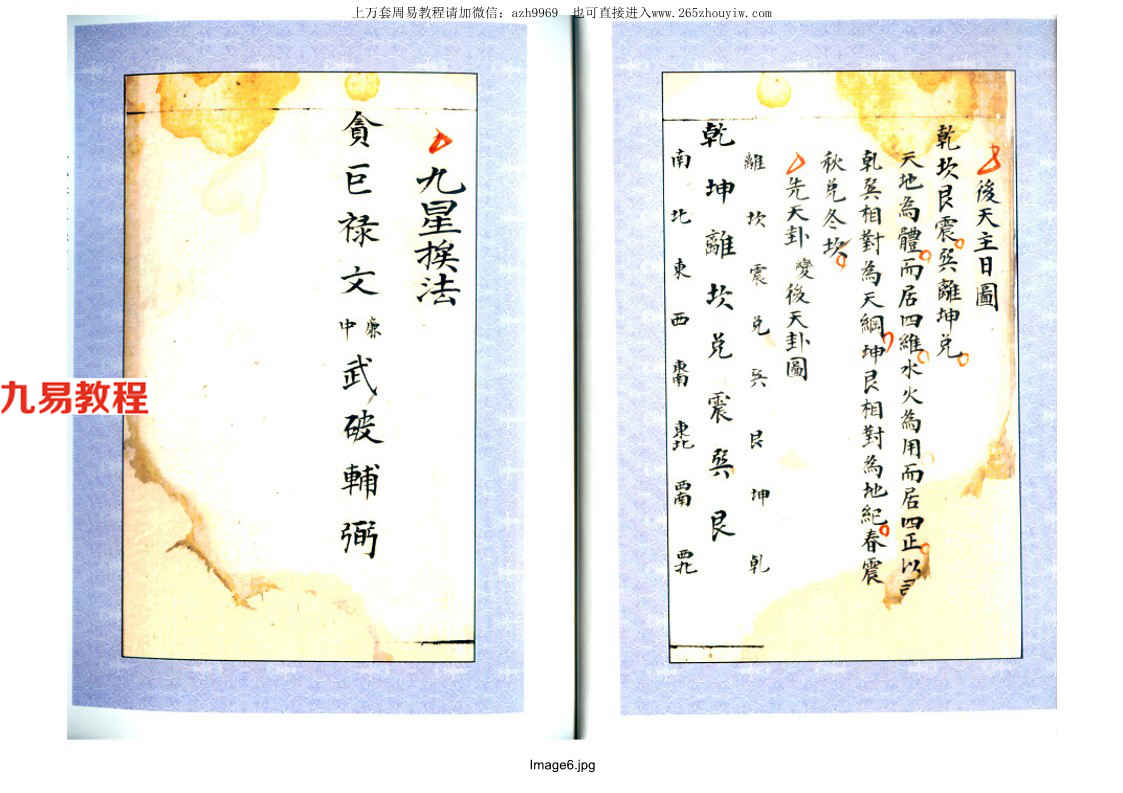 上万套周易教程请加微信：azh9969　也可直接进入www.265zhouyiw.com
後天主日圖
乾坎艮震巽離坤兌
天地為體而居四維水火為用而居四正以司
乾巽相對為天綱坤艮相對為地紀春震
秋兌冬坎
先天卦變後天卦圖
離坎震兌巽艮坤乾
乾坤離坎兌震巽艮
南北東西東南東北西南西北
九星挨法
貪巨祿文廉中武破輔弼
九易教程
Image6.jpg